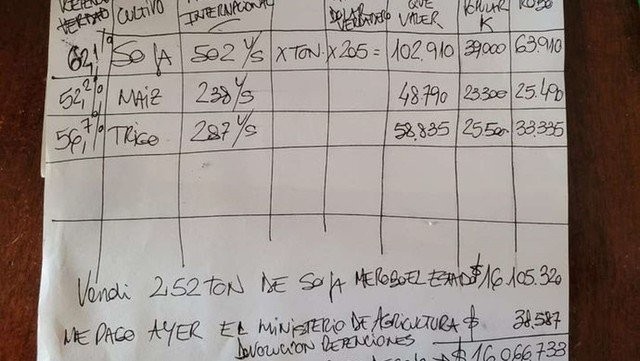 VERDAD CULTIVO INTERNACIONAL DOLAR VERDADERO QUE VALER K ROBO
62,1% SOJA 502 U/S X TON X 205 = 102.910 39000 63.910
52,2% MAIZ 238 U/S 48.790 23.300 25.490
56,7% TRIGO 287 U/S 58.835 25.500 33.335
Vendi 252 TON DE SOJA ME ROBO EL ESTADO $ 16.105.320
ME PAGO AYER EL MINISTERIO DE AGRICULTURA $ 38.587
DEVOLUCION RETENCIONES
$ 16.066.733